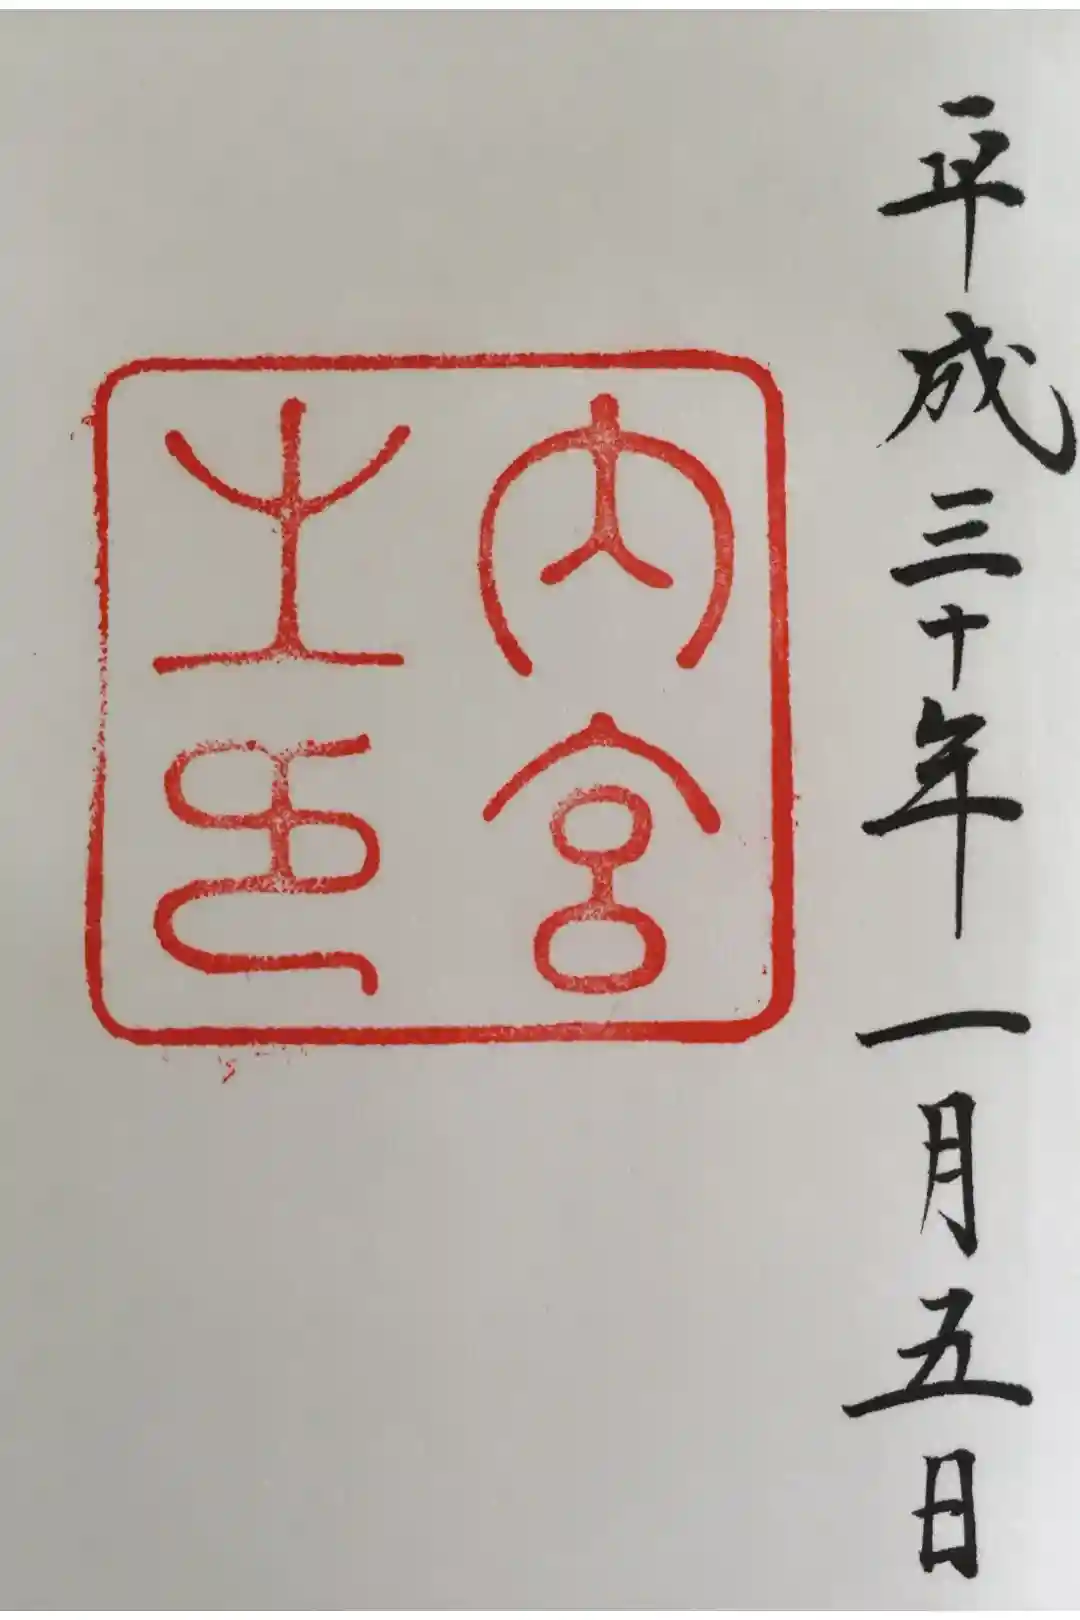 平成三十年一月五日
内宮
之印